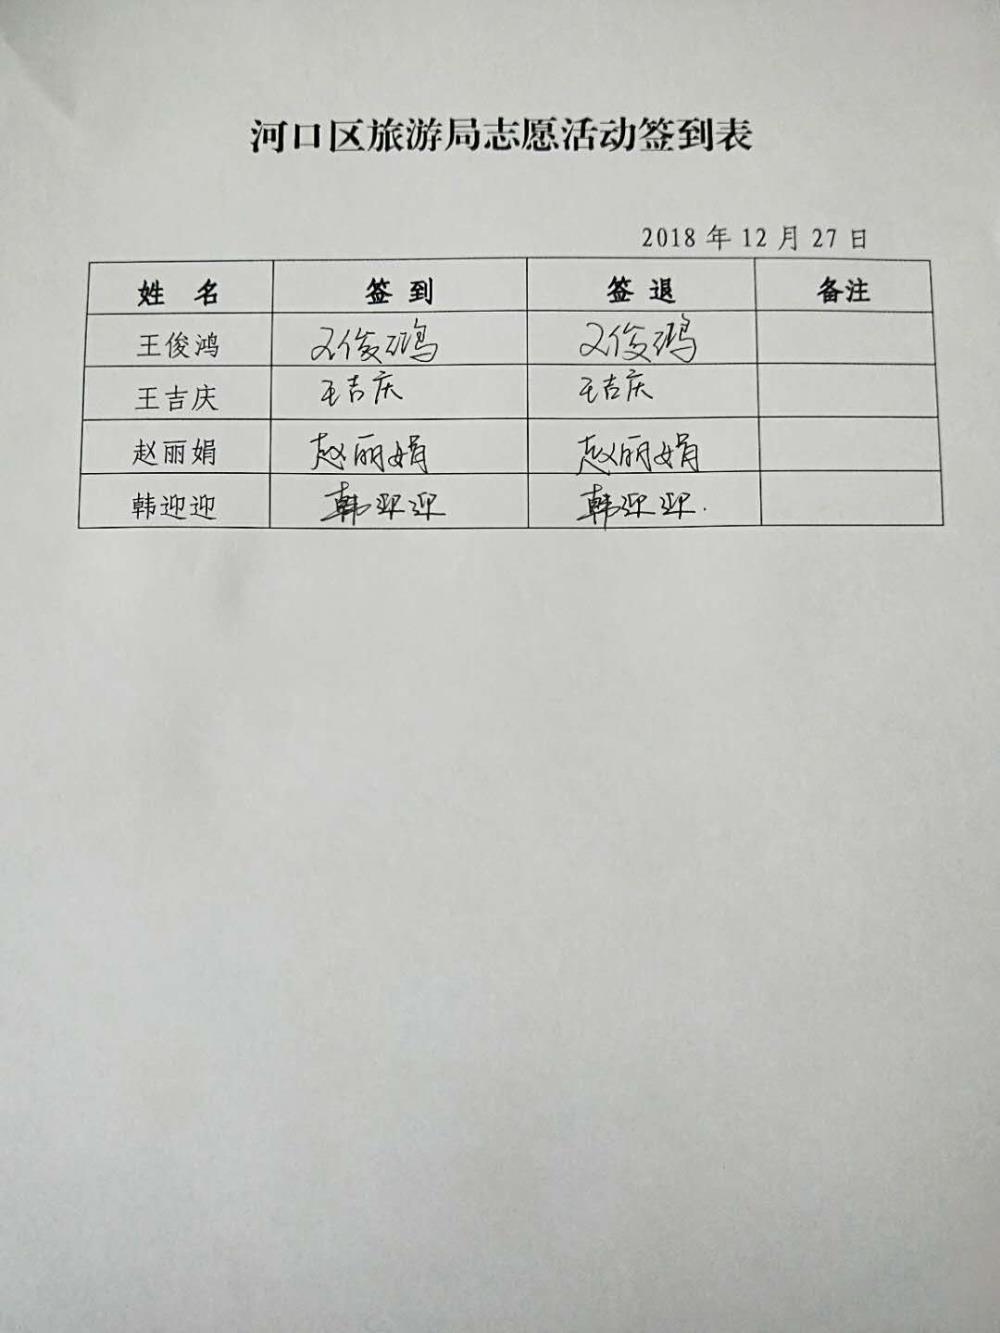 河口区旅游局志愿活动签到表
2018 年 12 月 27 日
姓 名 签 到 签 退 备注
王俊鸿 王俊鸿 王俊鸿
王吉庆 王吉庆 王吉庆
赵丽娟 赵丽娟 赵丽娟
韩迎迎 韩迎迎 韩迎迎.